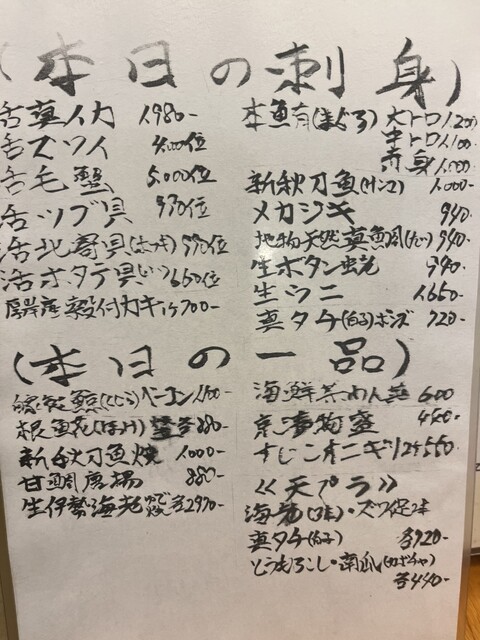 (本日の刺身)
活真イカ 1980-
活ズワイ 4,000位
活毛蟹 5,000位
活ツブ貝 970位
活北寄貝(ホッキ) 570位
活ホタテ貝 650位
厚岸産殻付カキ 700-
本鮪(まぐろ) 大トロ1200
中トロ1,100-
赤身1,000
新秋刀魚(サンマ) 1,000-
メカジキ 940-
地物天然真鯛(たい) 940-
生ボタン蝦 940-
生ウニ 1650-
真タチ(白子)ポンズ 720-
(本日の一品)
鯨(くじら)ベーコン 1,100-
根魚花(ほっけ) 880-
新秋刀魚焼 1000-
甘鯛唐揚 880-
生伊勢海老 2970-
海鮮 600
京漬物盛 440-
すじこオニギリ2ケ550-
≪天プラ≫
海老(3本)・ズワイ足2本
真タチ(白子) 各920-
とうもろこし・南瓜(カボチャ)
各440-